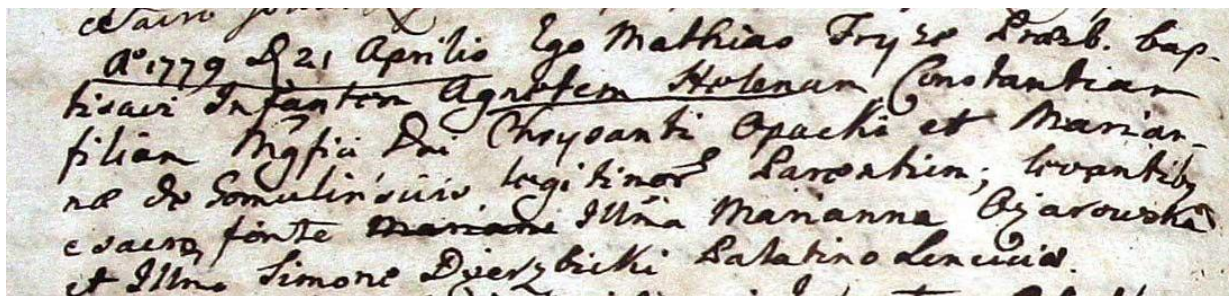 e Sacro
A° 1779 D 21 Aprilis Ego Mathias Fryze Præsb. bap-
tisavi Infantem Agnetem Helenam Constantiam
filiam Mgfici Dni Chrysanti Opacki et Marian-
næ de Gomulińskie legitimor Parentium; levantiby
e sacro fonte Illma Marianna Ożarowska
et Illmo Simone Dzierzbicki Palatino Lenciciæ.